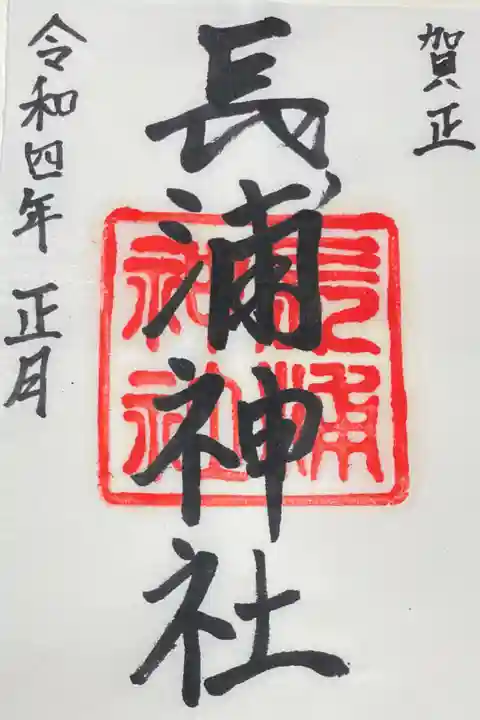 賀正
長浦神社
令和四年 正月
長浦
神社